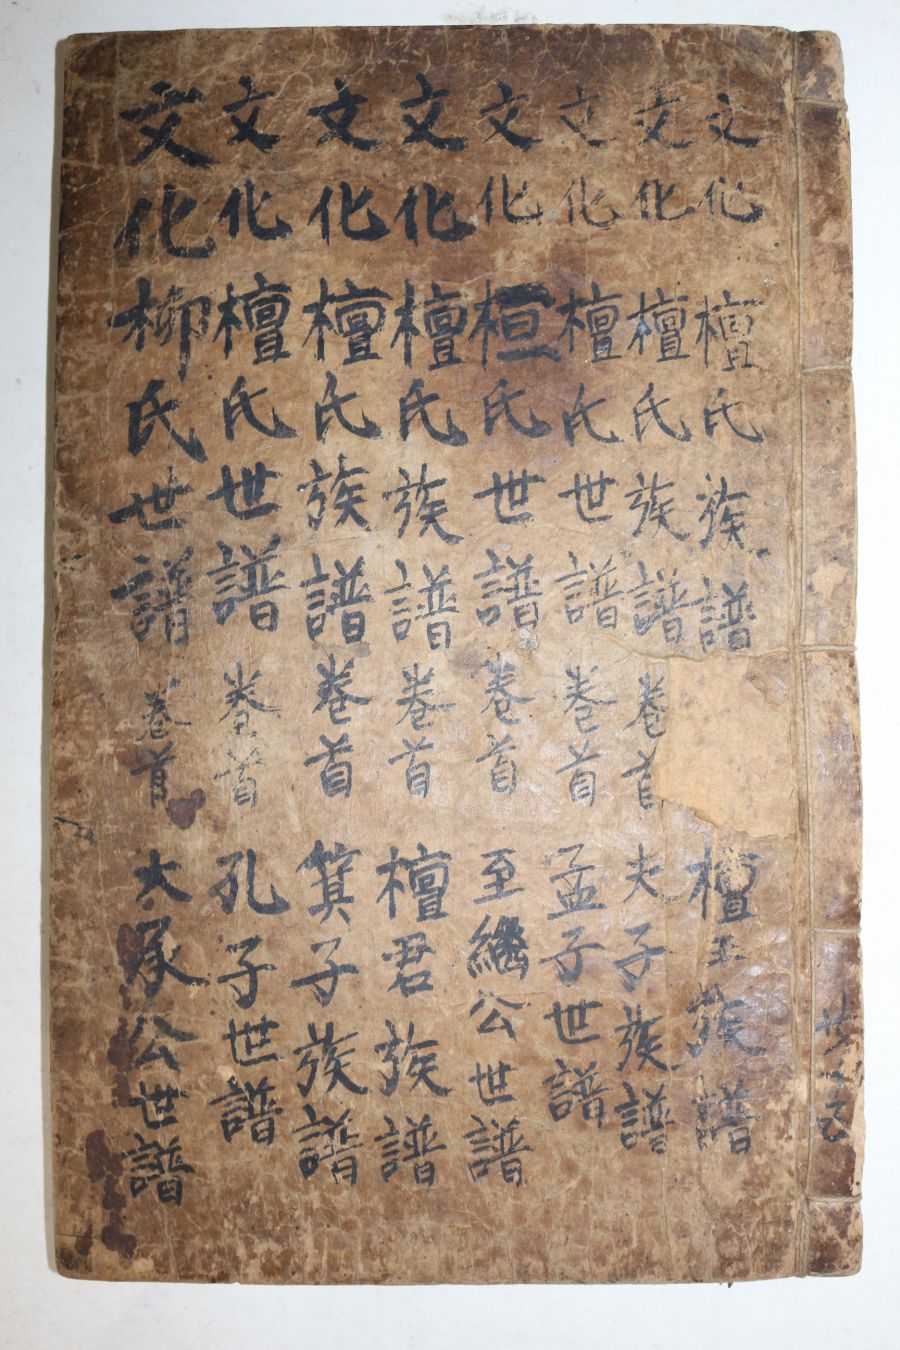 文化檀氏族譜 檀王族譜
文化檀氏族譜卷首 夫子族譜
文化檀氏世譜卷首 孟子世譜
文化桓氏世譜卷首 至繼公世譜
文化檀氏族譜卷首 檀君族譜
文化檀氏族譜卷首 箕子族譜
文化檀氏世譜卷首 孔子世譜
文化柳氏世譜卷首 大承公世譜